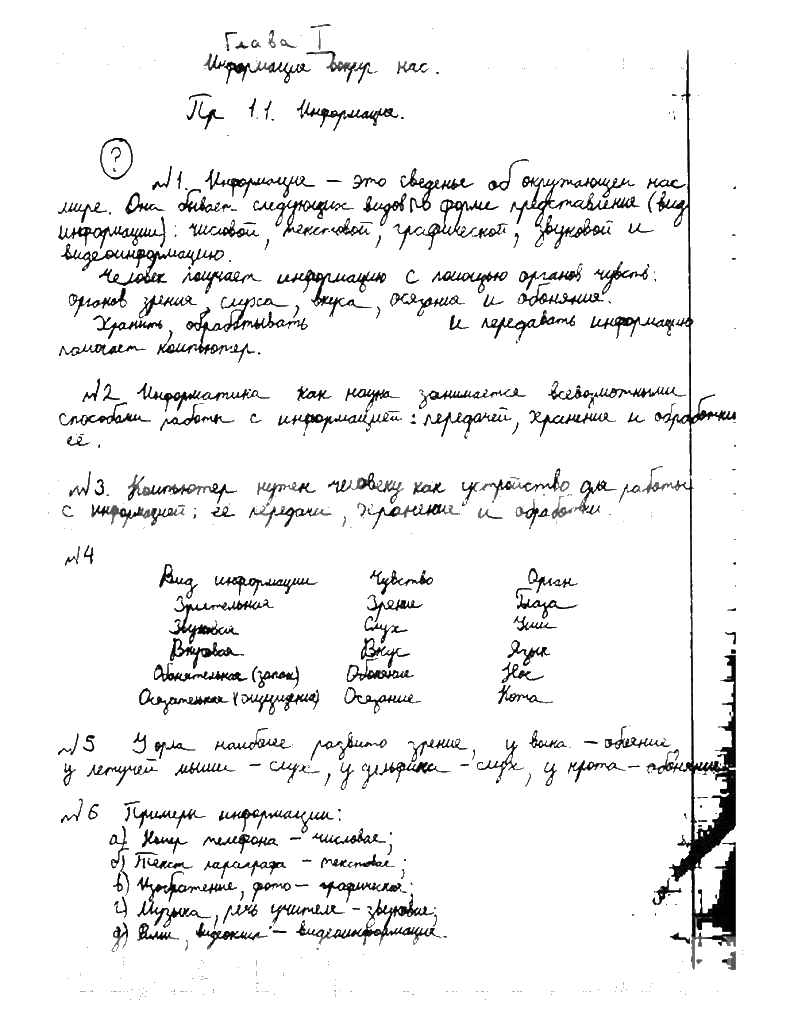 Глава I
Информация вокруг нас.
Пр 1.1. Информация.
?
№1. Информация – это сведенье об окружающем нас
мире. Она бывает следующих видов по форме представления (вид
информации): числовой, текстовой, графической, звуковой и
видеоинформацию.
Человек получает информацию с помощью органов чувств:
органов зрения, слуха, вкуса, осязания и обоняния.
Хранить, обрабатывать и передавать информацию
помогает компьютер.
№2 Информатика как наука занимается всевозможными
способами работы с информацией: передачей, хранение и обработки
её.
№3. Компьютер нужен человеку как устройство для работы
с информацией: её передачи, хранение и обработки.
№4
Вид информации Чувство Орган
Зрительная Зрение Глаза
Звуковая Слух Уши
Вкусовая Вкус Язык
Обонятельная (запах) Обоняние Нос
Осязательная (ощущения) Осязание Кожа
№5 У орла наиболее развито зрение, у волка – обоняние,
у летучей мыши – слух, у дельфина – слух, у крота – обоняние
№6 Примеры информации:
а) Номер телефона – числовая;
б) Текст параграфа – текстовая;
в) Изображение, фото – графическая;
г) Музыка, речь учителя – звуковая;
д) видеоинформация.